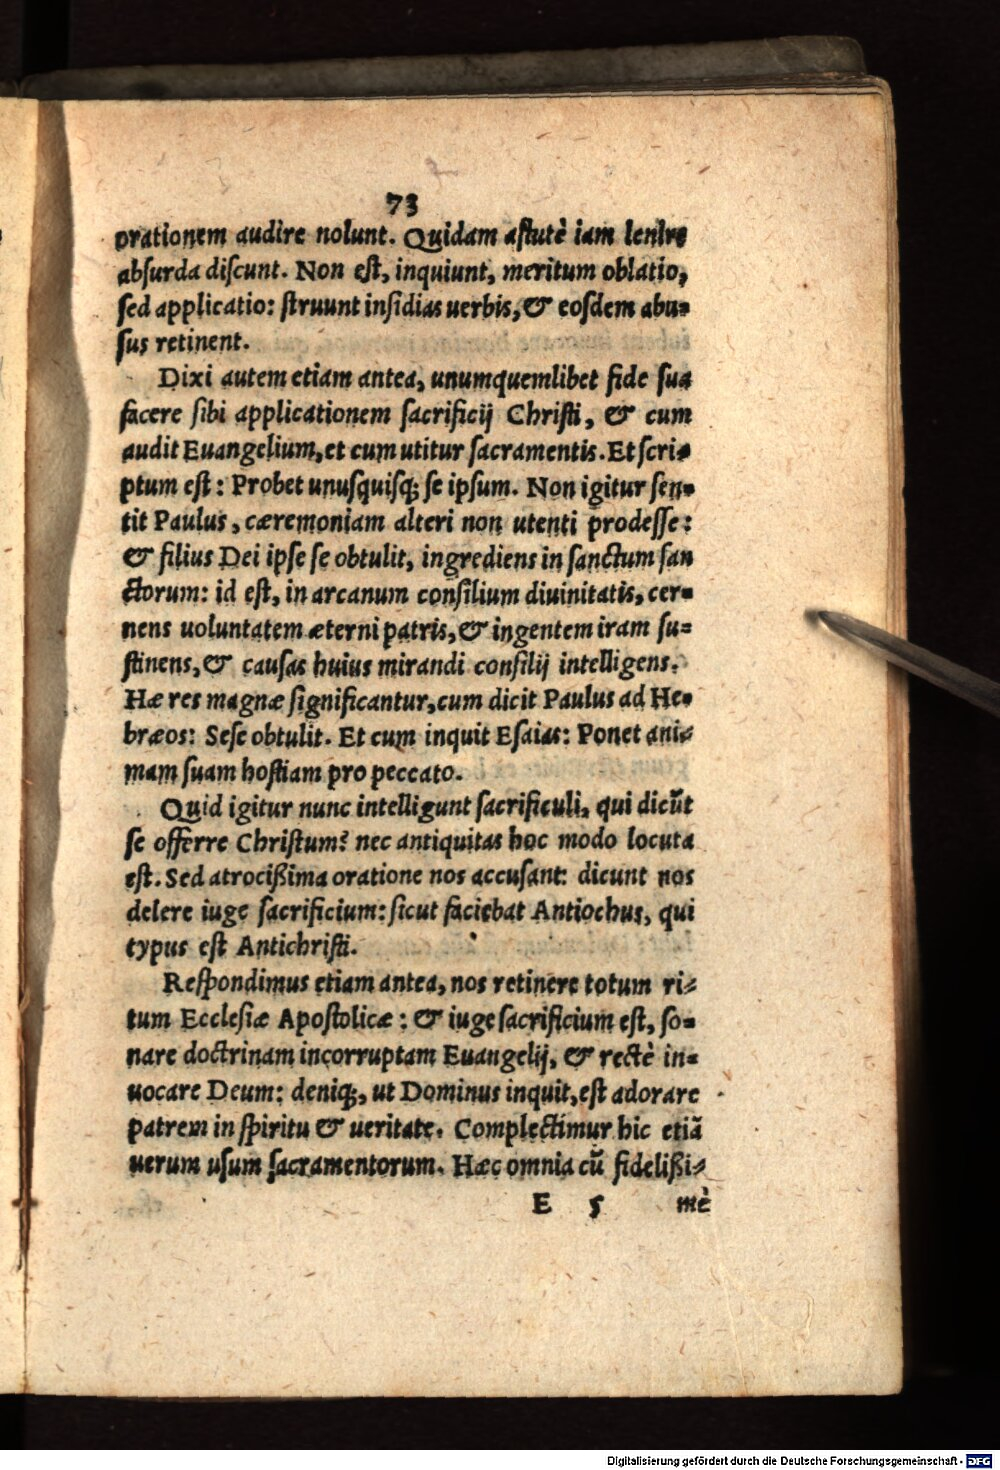 73
orationem audire nolunt. Quidam astutè iam lenire
absurda discunt. Non est, inquiunt, meritum oblatio,
sed applicatio: struunt insidias uerbis, & eosdem abu-
sus retinent.
Dixi autem etiam antea, unumquemlibet fide sua
facere sibi applicationem sacrificij Christi, & cum
audit Euangelium, et cum utitur sacramentis. Et scri-
ptum est: Probet unusquisq; se ipsum. Non igitur sen-
tit Paulus, cæremoniam alteri non utenti prodesse:
& filius Dei ipse se obtulit, ingrediens in sanctum san
ctorum: id est, in arcanum consilium diuinitatis, cer-
nens uoluntatem æterni patris, & ingentem iram su-
stinens, & causas huius mirandi consilij intelligens.
Hæ res magnæ significantur, cum dicit Paulus ad He-
bræos: Sese obtulit. Et cum inquit Esaias: Ponet ani-
mam suam hostiam pro peccato.
Quid igitur nunc intelligunt sacrificuli, qui dicūt
se offerre Christum? nec antiquitas hoc modo locuta
est. Sed atrocißima oratione nos accusant: dicunt nos
delere iuge sacrificium: sicut faciebat Antiochus, qui
typus est Antichristi.
Respondimus etiam antea, nos retinere totum ri-
tum Ecclesiæ Apostolicæ: & iuge sacrificium est, so-
nare doctrinam incorruptam Euangelij, & rectè in-
uocare Deum: deniq;, ut Dominus inquit, est adorare
patrem in spiritu & ueritate. Complectimur hic etiā
uerum usum sacramentorum. Hæc omnia cū fidelißi-
E 5 mè
Digitalisierung gefördert durch die Deutsche Forschungsgemeinschaft - DFG